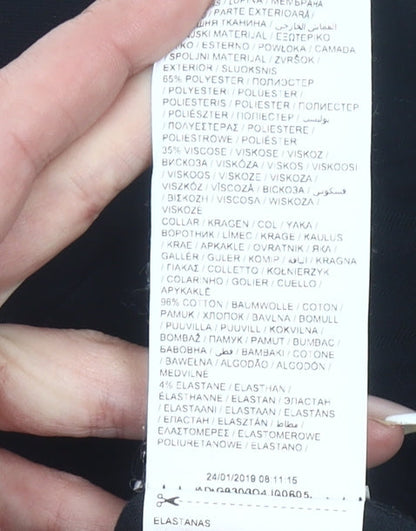 / PARTE EXTERIOARĂ /
MATERIJAL / ΕΞΩΤΕΡΙΚΟ
/ ESTERNO / POWŁOKA / CAMADA
/ SPOLJNI MATERIJAL / ZVRŠOK /
EXTERIÖR / SLUOKSNIS
65% POLYESTER / ПОЛИЭСТЕР
/ POLYESTERI / POLÜESTER /
POLIESTERIS / POLIESTER / ПОЛИЕСТЕР
/ POLIÉSZTER / ПОЛІЕСТЕР / بوليستر
/ ΠΟΛΥΕΣΤΕΡΑΣ / POLIESTERE /
POLIESTROWE / POLIÉSTER
35% VISCOSE / VISKOSE / VISKOZ /
ВИСКОЗА / VISKÓZA / VISKOS / VISKOOSI
/ VISKOOS / VISKOZE / VISKOZA /
VISZKÓZ / VÎSCOZĂ / ВІСКОЗА / فسكوز
/ ΒΙΣΚΟΖΗ / VISCOSA / WISKOZA /
VISKOZE
COLLAR / KRAGEN / COL / YAKA /
ВОРОТНИК / LÍMEC / KRAGE / KAULUS
/ KRAE / APKAKLE / OVRATNIK / ЯКА /
GALLÉR / GULER / КОМІР / الياقة / KRAGNA
/ ΓΙΑΚΑΣ / COLLETTO / KOŁNIERZYK
/ COLARINHO / GOLIER / CUELLO /
APYKAKLĖ
96% COTTON / BAUMWOLLE / COTON /
PAMUK / ХЛОПОК / BAVLNA / BOMULL
/ PUUVILLA / PUUVILL / KOKVILNA /
BOMBAŽ / ПАМУК / PAMUT / BUMBAC /
БАВОВНА / قطن / ΒΑΜΒΑΚΙ / COTONE
/ BAWEŁNA / ALGODÃO / ALGODÓN /
MEDVILNĖ
4% ELASTANE / ELASTHAN /
ÉLASTHANNE / ELASTAN / ЭЛАСТАН
/ ELASTAANI / ELASTAAN / ELASTĀNS
/ ЕЛАСТАН / ELASZTÁN / مطاط /
ΕΛΑΣΤΟΜΕΡΕΣ / ELASTOMEROWE
POLIURETANOWE / ELASTANO /
24/01/2019 08:11:15
ELASTANAS